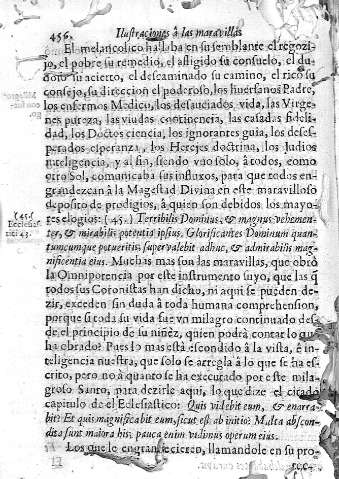 456. Ilustraciones à las maravillas
El melancolico hallaba en su semblante el regozi-
jo, el pobre su remedio, el afligido su consuelo, el du-
doso su acierto, el descaminado su camino, el rico su
consejo, su direccion el poderoso, los huerfanos Padre,
los enfermos Medico, los desauciados vida, las Virge-
nes pureza, las viudas continencia, las casadas fideli-
dad, los Doctos ciencia, los ignorantes guia, los deses-
perados esperanza, los Herejes doctrina, los Judios
inteligencia, y al fin, siendo vno solo, à todos, como
otro Sol, comunicaba sus influxos, para que todos en-
grandezcan à la Magestad Divina en este maravilloso
deposito de prodigios, à quien son debidos los mayo-
res elogios: (45.) Terribilis Dominus, & magnus vehemen-
(45)
Ecclesias-
tici 43.
ter, & mirabilis potentia ipsius. Glorificantes Dominum quan-
tumcumque potueritis supervalebit adhuc, & admirabilis mag-
nificentia eius. Muchas mas son las maravillas, que obrò
la Omnipotencia por este instrumento suyo, que las q̃
todos sus Coronistas han dicho, ni aqui se pueden de-
zir, exceden sin duda à toda humana comprehension,
porque si toda su vida fue vn milagro continuado des-
de el principio de su niñez, quien podrà contar lo que
ha obrado? Pues lo mas està escondido à la vista, è in-
teligencia nuestra, que solo se arregla à lo que se ha es-
crito, pero no à quanto se ha executado por este mila-
groso Santo, para dezirle aqui, lo que dize el citado
capitulo de el Eclesiastico: Quis videbit eum, & enarra-
bit? Et quis magnificabit eum, sicut est ab initio? Multa abscon-
dita sunt maiora his: pauca enim vidimus operum eius.
Los que le engrandecieren, llamandole en su pro-